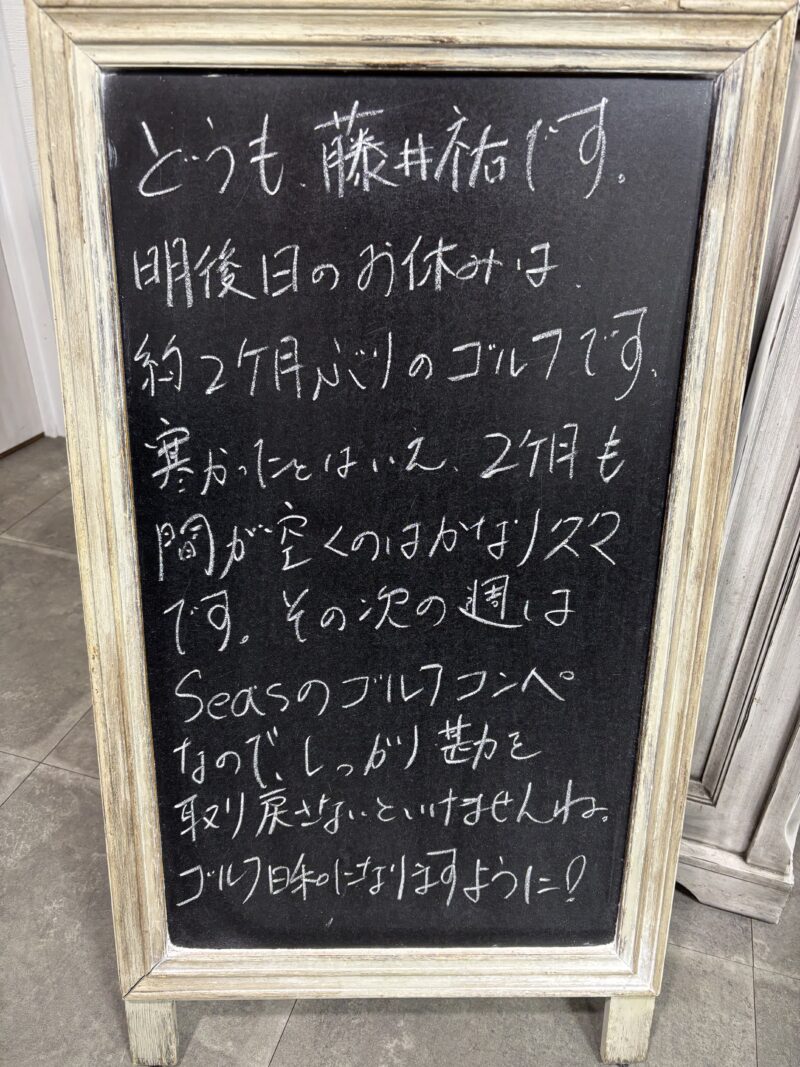 どうも、藤井祐です。
明後日のお休みは、
約2ケ月ぶりのゴルフです。
寒かったとはいえ、2ケ月も
間が空くのはかなりノスタ
です。その次の週は
Seasのゴルフコンペ
なので、しっかり勘を
取り戻さないといけませんね。
ゴルフ日和になりますように!